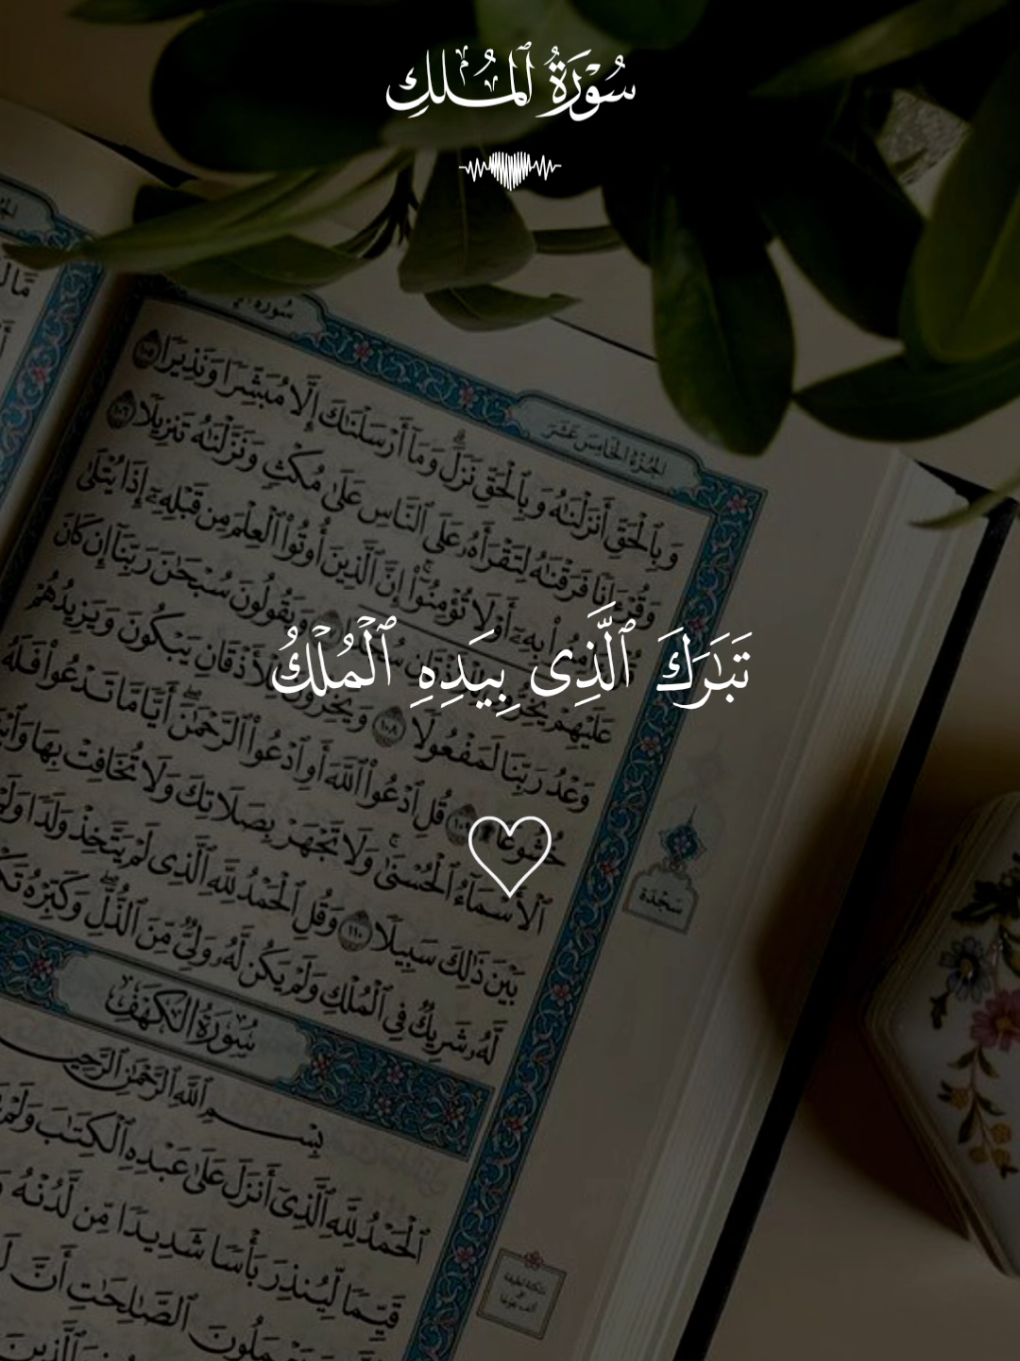 سُوْرَةُ ٱلْمُلكِ
تَبَـٰرَكَ ٱلَّذِى بِيَدِهِ ٱلْمُلْكُ
سُورَةُ
الجُزْءُ الخَامِسَ عَشَرَ
وَبِٱلْحَقِّ أَنزَلْنَـٰهُ وَبِٱلْحَقِّ نَزَلَ وَمَآ أَرْسَلْنَـٰكَ إِلَّا مُبَشِّرًا وَنَذِيرًا ١٠٥
وَقُرْءَانًا فَرَقْنَـٰهُ لِتَقْرَأَهُۥ عَلَى ٱلنَّاسِ عَلَىٰ مُكْثٍ وَنَزَّلْنَـٰهُ تَنزِيلًا ١٠٦
بِهِۦٓ أَوْ لَا تُؤْمِنُوٓا۟ إِنَّ ٱلَّذِينَ أُوتُوا۟ ٱلْعِلْمَ مِن قَبْلِهِۦٓ إِذَا يُتْلَىٰ
عَلَيْهِمْ يَخِرُّونَ وَيَقُولُونَ سُبْحَـٰنَ رَبِّنَآ إِن كَانَ
وَعْدُ رَبِّنَا لَمَفْعُولًا ١٠٨ وَيَخِرُّونَ لِلْأَذْقَانِ يَبْكُونَ وَيَزِيدُهُمْ
خُشُوعًا قُلِ ٱدْعُوا۟ ٱللَّهَ أَوِ ٱدْعُوا۟ ٱلرَّحْمَـٰنَ أَيًّا مَّا تَدْعُوا۟ فَلَهُ
ٱلْأَسْمَآءُ ٱلْحُسْنَىٰ وَلَا تَجْهَرْ بِصَلَاتِكَ وَلَا تُخَافِتْ بِهَا
بَيْنَ ذَٰلِكَ سَبِيلًا ١١٠ وَقُلِ ٱلْحَمْدُ لِلَّهِ ٱلَّذِى لَمْ يَتَّخِذْ وَلَدًا
لَّهُۥ شَرِيكٌ فِى ٱلْمُلْكِ وَلَمْ يَكُن لَّهُۥ وَلِىٌّ مِّنَ ٱلذُّلِّ وَكَبِّرْهُ
سَجْدَة
سُورَةُ الكَهْفِ
بِسْمِ ٱللَّهِ ٱلرَّحْمَـٰنِ ٱلرَّحِيمِ
ٱلْحَمْدُ لِلَّهِ ٱلَّذِىٓ أَنزَلَ عَلَىٰ عَبْدِهِ ٱلْكِتَـٰبَ وَلَمْ
قَيِّمًا لِّيُنذِرَ بَأْسًا شَدِيدًا مِّن لَّدُنْهُ
ٱلصَّـٰلِحَـٰتِ أَنَّ